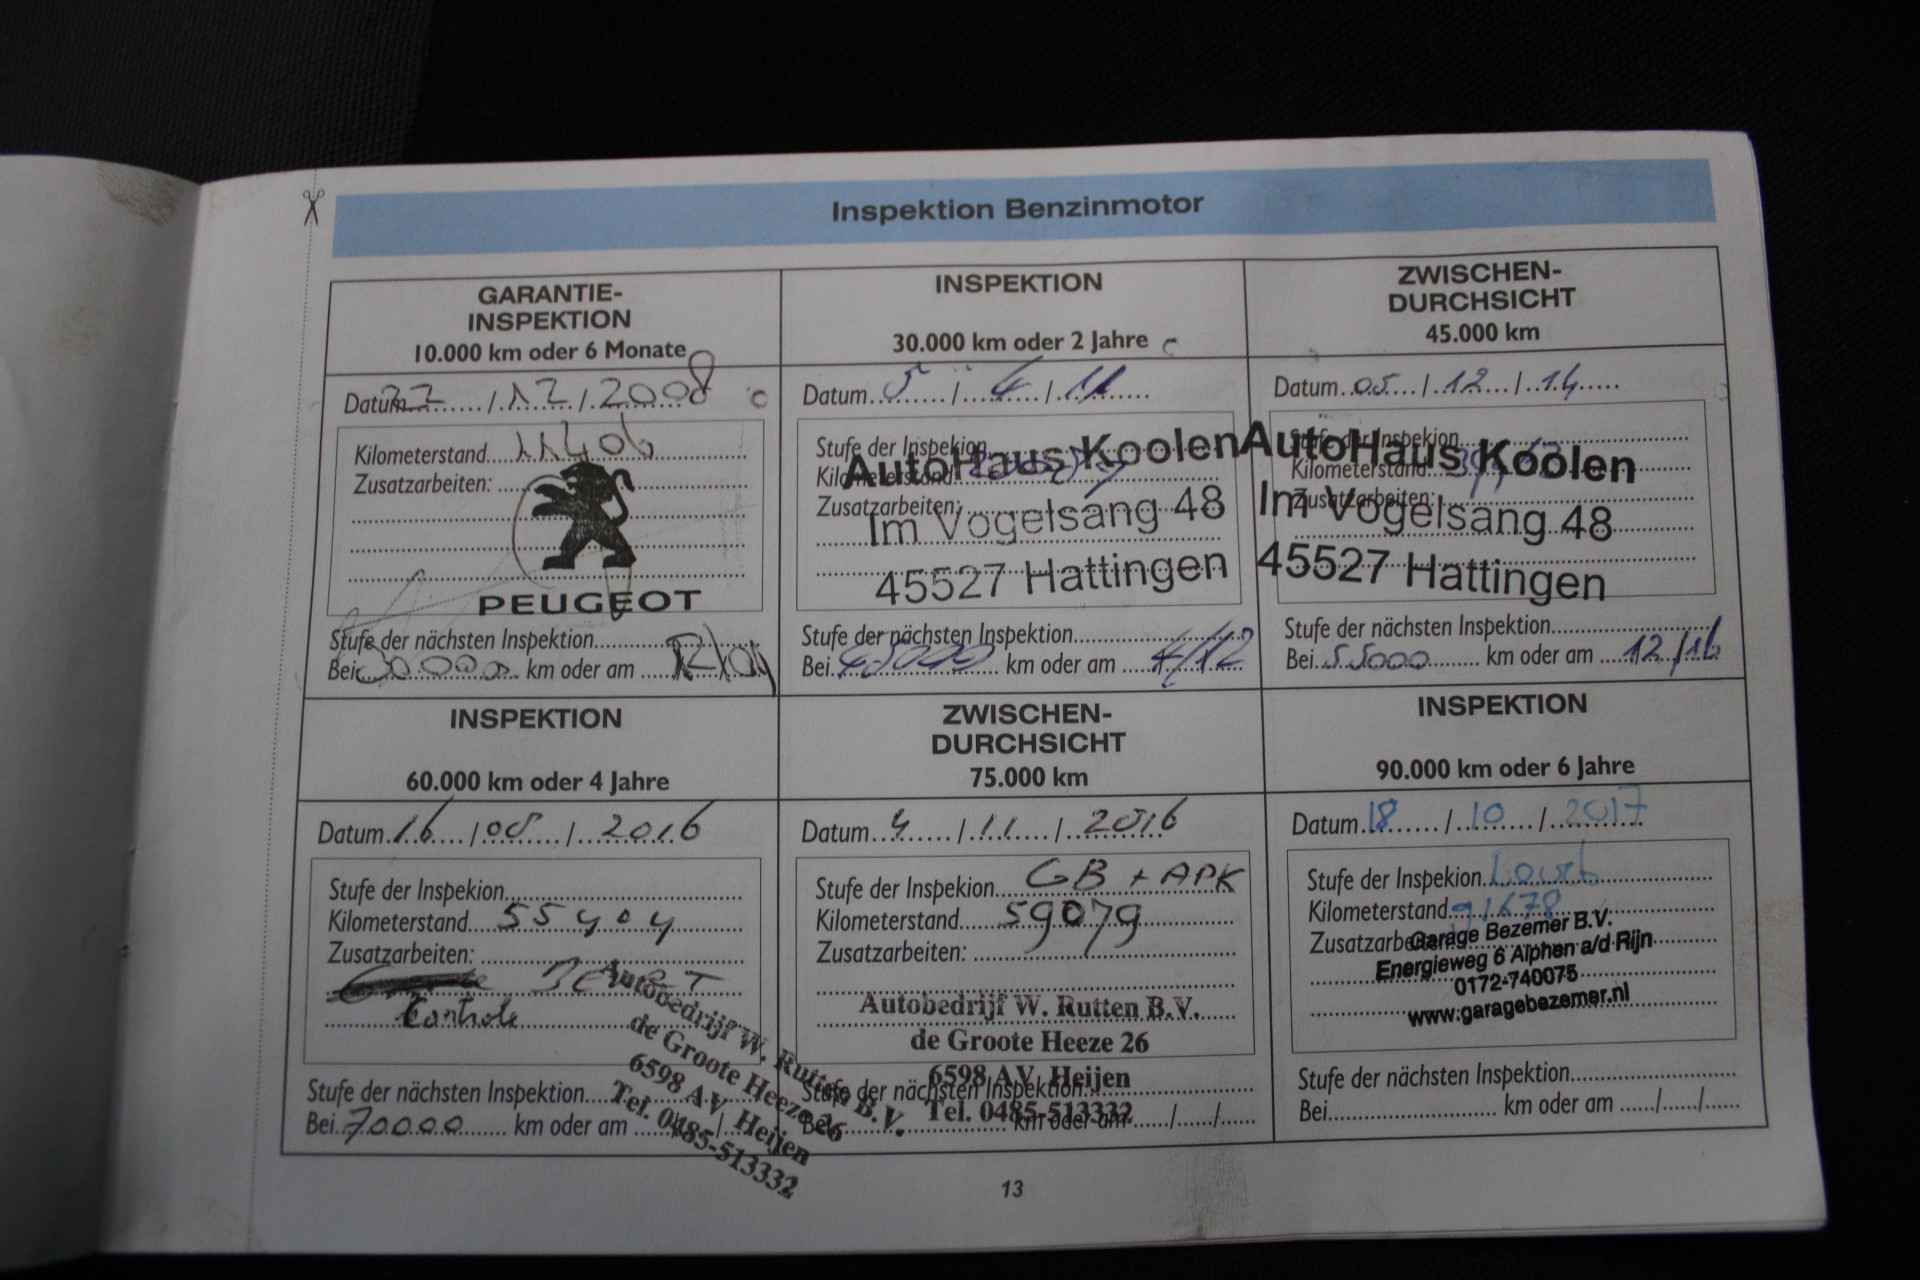 Inspektion Benzinmotor
GARANTIE-
INSPEKTION
10.000 km oder 6 Monate
Datum / 12 / 2008
Kilometerstand 11406
Zusatzarbeiten:
PEUGEOT
Stufe der nächsten Inspektion
Bei 30.000 km oder am
INSPEKTION
30.000 km oder 2 Jahre
Datum 5 / 4 / 11
Stufe der Inspekion
Kilometerstand
Zusatzarbeiten:
AutoHaus Koolen
Im Vogelsang 48
45527 Hattingen
Stufe der nächsten Inspektion
Bei 45000 km oder am 4/12
ZWISCHEN-
DURCHSICHT
45.000 km
Datum 05 / 12 / 14
Stufe der Inspekion
Kilometerstand
Zusatzarbeiten:
AutoHaus Koolen
Im Vogelsang 48
45527 Hattingen
Stufe der nächsten Inspektion
Bei 55000 km oder am 12/16
INSPEKTION
60.000 km oder 4 Jahre
Datum 16 / 08 / 2016
Stufe der Inspekion
Kilometerstand 55404
Zusatzarbeiten:
Controle
Autobedrijf W. Rutten B.V.
de Groote Heeze 26
6598 AV Heijen
Tel. 0485-513332
Stufe der nächsten Inspektion
Bei 70000 km oder am
ZWISCHEN-
DURCHSICHT
75.000 km
Datum 4 / 11 / 2016
Stufe der Inspekion GB + APK
Kilometerstand 59079
Zusatzarbeiten:
Autobedrijf W. Rutten B.V.
de Groote Heeze 26
6598 AV Heijen
Tel. 0485-513332
Stufe der nächsten Inspektion
Bei km oder am / /
INSPEKTION
90.000 km oder 6 Jahre
Datum 18 / 10 / 2017
Stufe der Inspekion
Kilometerstand 91678
Zusatzarbeiten:
Garage Bezemer B.V.
Energieweg 6 Alphen a/d Rijn
0172-740075
www.garagebezemer.nl
Stufe der nächsten Inspektion
Bei km oder am / /
13